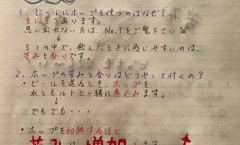 1. ビールにホップを使うのはなぜ?
主に言うあります。
思い出せない方は、No.1をご覧下さい
↓
5つの中で、飲んだときに感じやすいのは、
苦みと香りです。
2. ホップの苦みと香りはどうやって付くの?
・ビールを造るとき、ホップを
水とモルトと一緒に煮込みます。
↓
でもでも・・・
・ホップを加熱するほど
苦みは増加